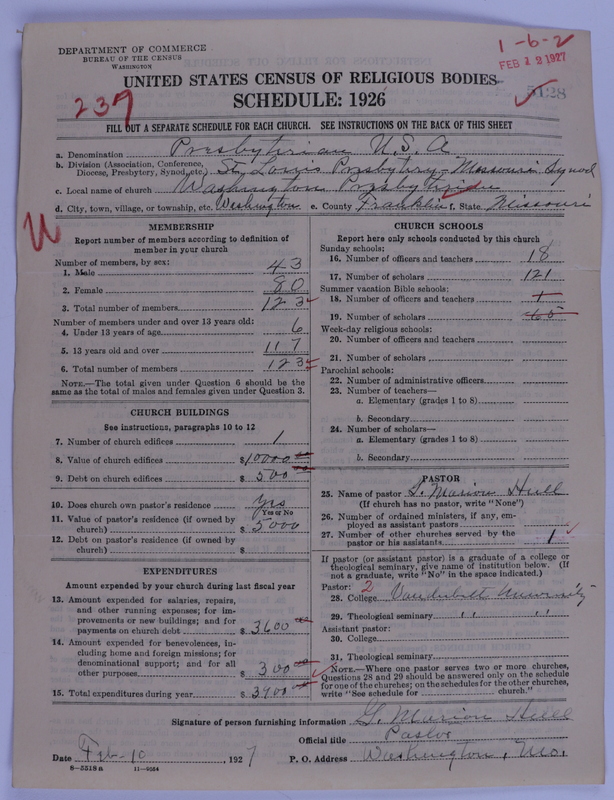 DEPARTMENT OF COMMERCE
BUREAU OF THE CENSUS
WASHINGTON
1-6-2
FEB 12 1927
5128
UNITED STATES CENSUS OF RELIGIOUS BODIES
SCHEDULE: 1926
237
FILL OUT A SEPARATE SCHEDULE FOR EACH CHURCH. SEE INSTRUCTIONS ON THE BACK OF THIS SHEET
a. Denomination Presbyterian U.S.A
b. Division (Association, Conference, Diocese, Presbytery, Synod, etc.) St. Louis Presbytery - Missouri Synod
c. Local name of church Washington Presbyterian
d. City, town, village, or township, etc. Washington e. County Franklin f. State Missouri
MEMBERSHIP
Report number of members according to definition of
member in your church
Number of members, by sex:
1. Male 43
2. Female 80
3. Total number of members 123
Number of members under and over 13 years old:
4. Under 13 years of age 6
5. 13 years old and over 117
6. Total number of members 123
NOTE.—The total given under Question 6 should be the
same as the total of males and females given under Question 3.
CHURCH BUILDINGS
See instructions, paragraphs 10 to 12
7. Number of church edifices 1
8. Value of church edifices $10000
9. Debt on church edifices $500
10. Does church own pastor's residence Yes
Yes or No
11. Value of pastor's residence (if owned by
church) $5000
12. Debt on pastor's residence (if owned by
church) $
EXPENDITURES
Amount expended by your church during last fiscal year
13. Amount expended for salaries, repairs,
and other running expenses; for im-
provements or new buildings; and for
payments on church debt $3600
14. Amount expended for benevolences, in-
cluding home and foreign missions; for
denominational support; and for all
other purposes $300
15. Total expenditures during year $3900
CHURCH SCHOOLS
Report here only schools conducted by this church
Sunday schools:
16. Number of officers and teachers 18
17. Number of scholars 121
Summer vacation Bible schools:
18. Number of officers and teachers
19. Number of scholars 60
Week-day religious schools:
20. Number of officers and teachers
21. Number of scholars
Parochial schools:
22. Number of administrative officers
23. Number of teachers—
a. Elementary (grades 1 to 8)
b. Secondary
24. Number of scholars—
a. Elementary (grades 1 to 8)
b. Secondary
PASTOR
25. Name of pastor G. Marion Hull
(If church has no pastor, write "None")
26. Number of ordained ministers, if any, em-
ployed as assistant pastors
27. Number of other churches served by the
pastor or his assistants 1
If pastor (or assistant pastor) is a graduate of a college or
theological seminary, give name of institution below. (If
not a graduate, write "No" in the space indicated.)
Pastor: 2
28. College Vanderbilt University
29. Theological seminary " " " "
Assistant pastor:
30. College
31. Theological seminary
NOTE.—Where one pastor serves two or more churches,
Questions 28 and 29 should be answered only on the schedule
for one of the churches; on the schedules for the other churches,
write "See schedule for church."
Signature of person furnishing information G. Marion Hull
Official title Pastor
Date Feb-10, 1927 P. O. Address Washington, Mo.
8-5518 a 11-9084